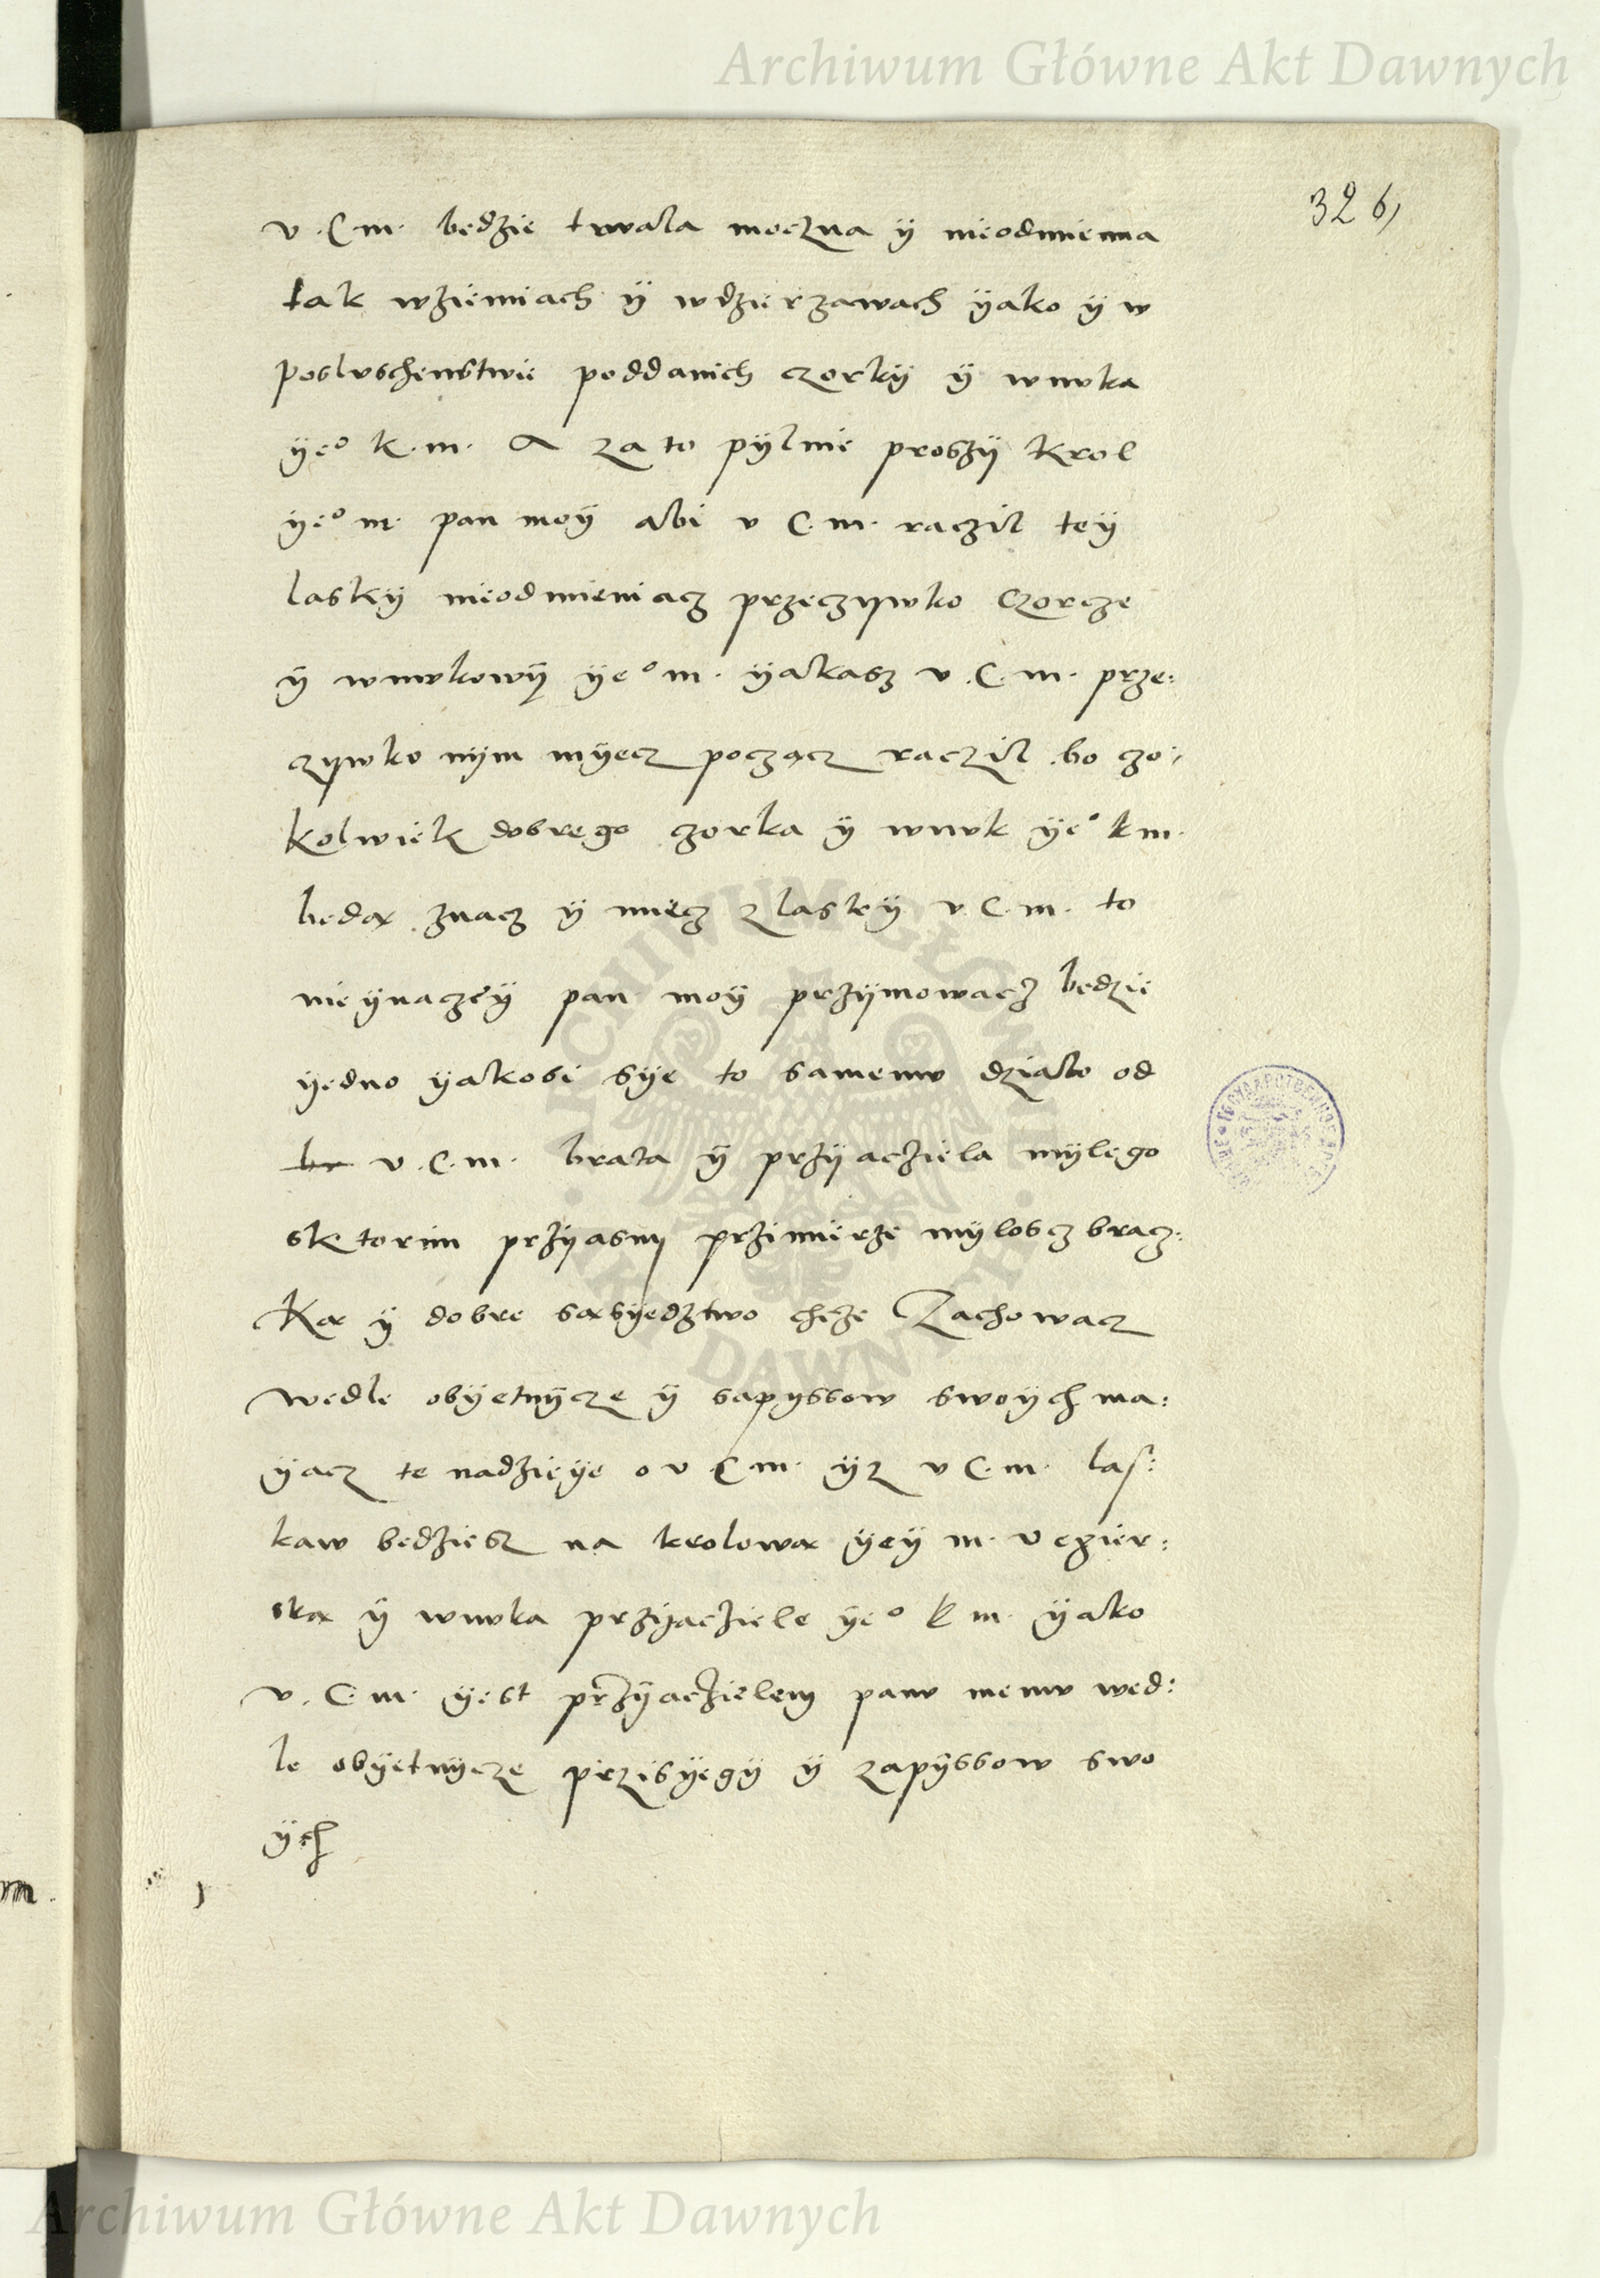 Archiwum Główne Akt Dawnych
326
v. C. m. bedzie trwala moczna ÿ nieodmienna
tak wziemiach ÿ wdzierzawach ÿako ÿ w
posluschenstwie poddanich czorkÿ ÿ wnuka
ÿe° k. m. A za to pÿlnie proszÿ Krol
ÿe° m. pan moÿ abi v C. m. raczil teÿ
laskÿ nieodmieniacz przeczywko Czorcze
ÿ wnukowÿ ÿe° m. ÿakasz v. C. m. prze:
czywko nÿm mÿecz począcz raczil. bo czo:
kolwiek dobrego czorka ÿ wnuk ÿe° k m.
bedą znacz ÿ miecz z laskÿ v. C. m. to
nieÿnaczeÿ pan moÿ przÿmowacz bedzie
ÿedno ÿakobi sÿe to samemu dzialo od
br v. C. m. brata ÿ przÿacziela mÿlego
sktorim przÿasnÿ przimierze mÿloscz bracz:
Ką ÿ dobre sąsÿedztwo chcze Zachowacz
wedle obÿetnÿcze ÿ sapÿssow swoÿch ma:
ÿącz te nadzieÿe o v C. m. ÿz v C. m. las:
kaw bedziesz na krolową ÿeÿ m. vegier:
ską ÿ wnuka przÿaciele ÿe° k m. ÿako
v. C. m. ÿest przÿaczielem panu memu wed:
le obÿetnÿcze przisÿegÿ ÿ zapÿssow swo
ÿch
Archiwum Główne Akt Dawnych